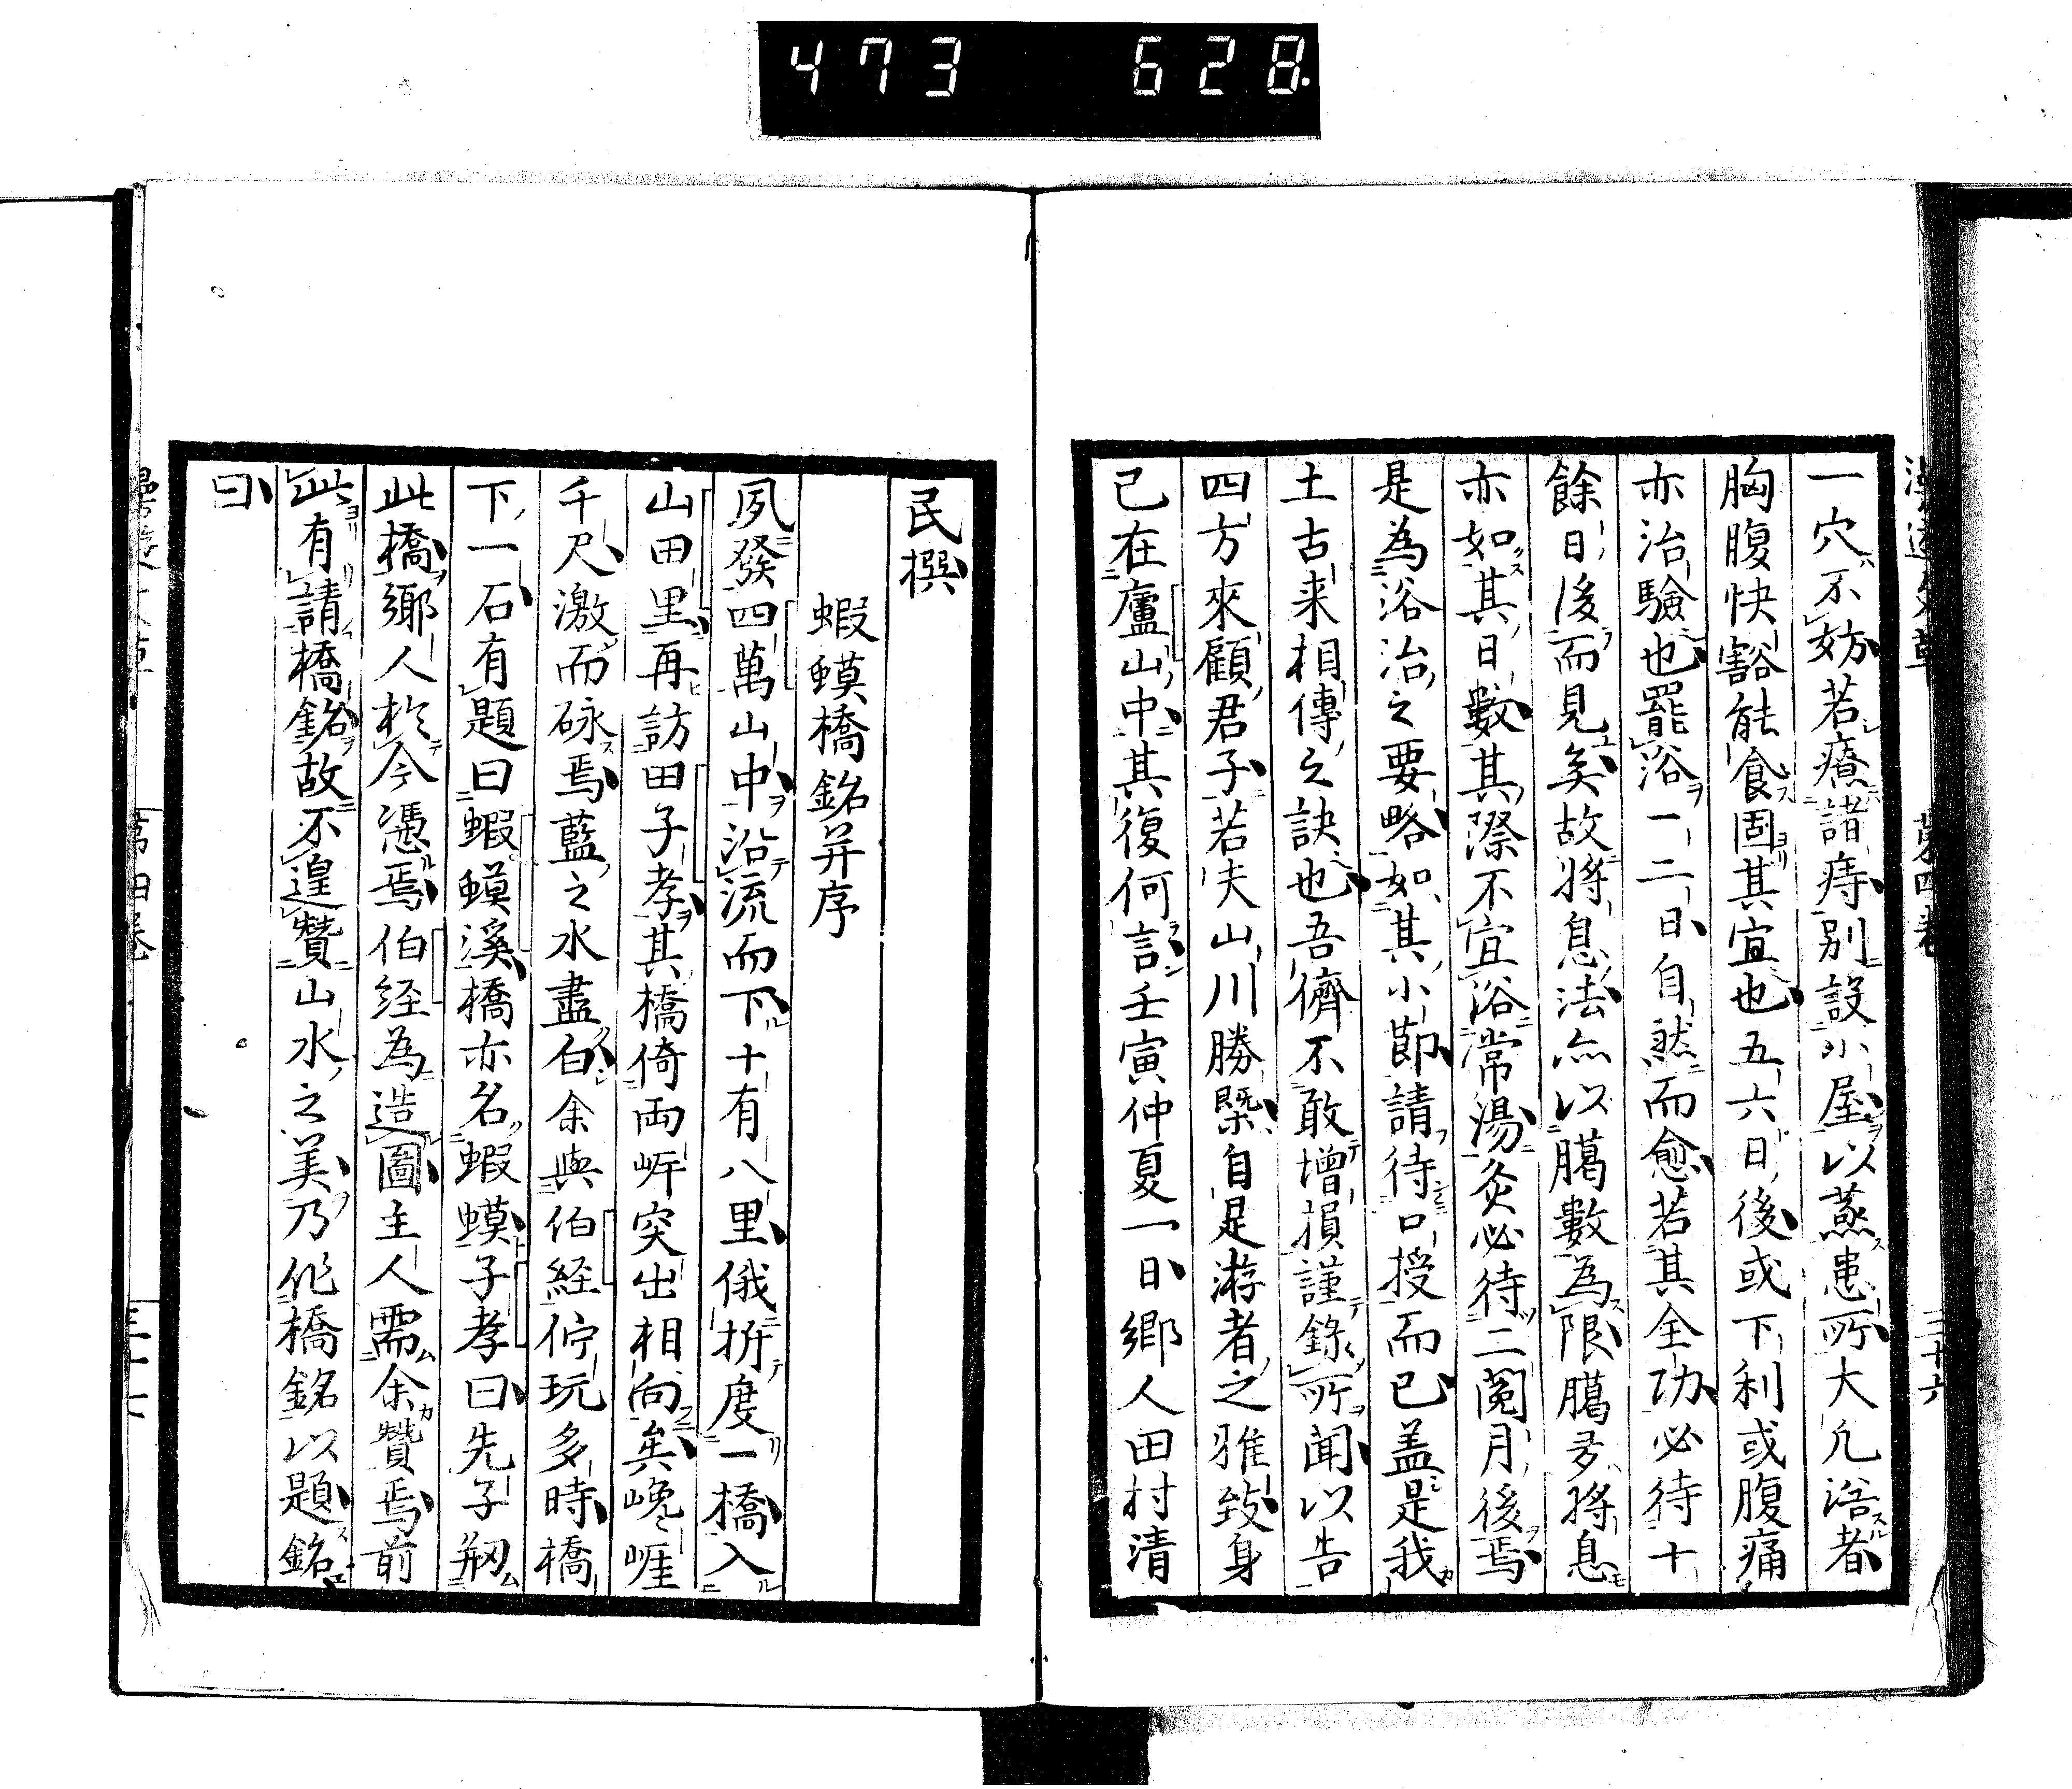 473 628.
一穴不妨若療諸痔別設小屋以蒸患所大凡浴者
胸腹快豁能食固其宜也五六日後或下利或腹痛
亦治驗也罷浴一二日自然而愈若其全功必待十
餘日後而見矣故將息法亦以臈數為限臈多將息
亦如其日數其際不宜浴常湯灸必待二閲月後焉
是為浴治之要略如其小節請待口授而已盖是我
土古来相傳之訣也吾儕不敢增損謹錄所聞以告
四方來顧君子若夫山川勝槩自是游者之雅致身
已在廬山中其復何言壬寅仲夏一日鄉人田村清
民撰
蝦蟆橋銘并序
夙發四萬山中沿流而下十有八里俄拚度一橋入
山田里再訪田子孝其橋倚両岸突出相向矣巉々崖
千尺激而砯焉藍之水盡白余與伯経佇玩多時橋
下一石有題曰蝦蟆溪橋亦名蝦蟆子孝曰先子剏
此橋鄉人於今憑焉伯経為造圖主人需余贊焉前
此有請橋銘故不遑贊山水之美乃作橋銘以題銘
曰
第四卷
三十六